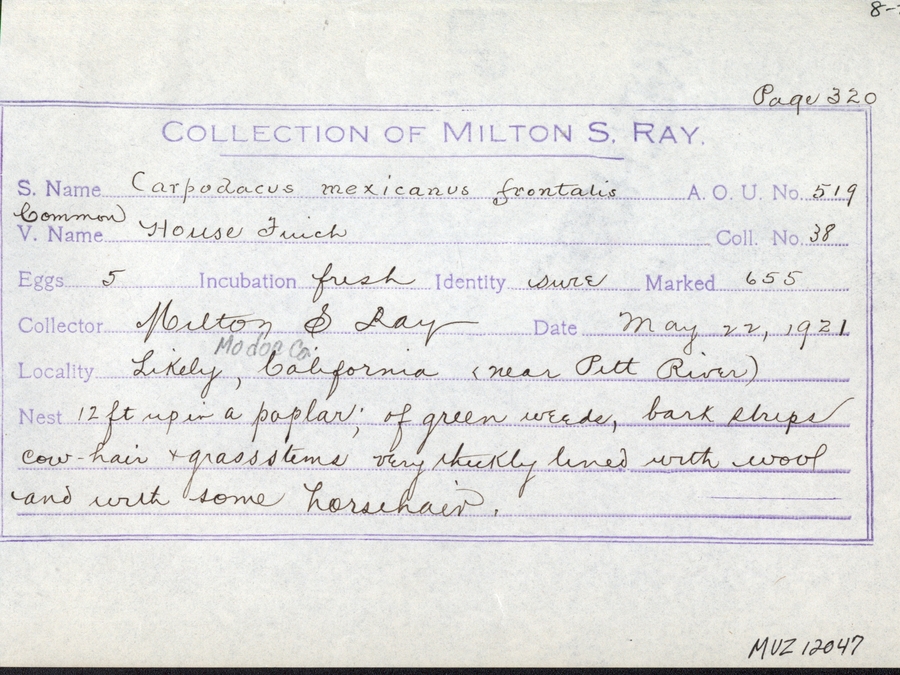 8-
Page 320
COLLECTION OF MILTON S. RAY.
S. Name Carpodacus mexicanus frontalis A. O. U. No. 519
Common
V. Name House Finch Coll. No. 38
Eggs 5 Incubation fresh Identity sure Marked 655
Collector Milton S Ray Date May 22, 1921
Modoc Co.
Locality Likely, California (near Pitt River)
Nest 12 ft up in a poplar; of green weeds, bark strips
cow-hair + grassstems very thickly lined with wool
and with some horsehair.
MVZ 12047